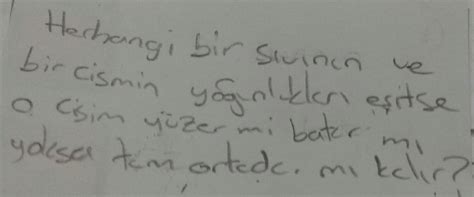 Herhangi bir sıvının ve
bir cismin yoğunlukları eşitse
o cisim yüzer mi batar mı
yoksa tam ortada mı kalır?